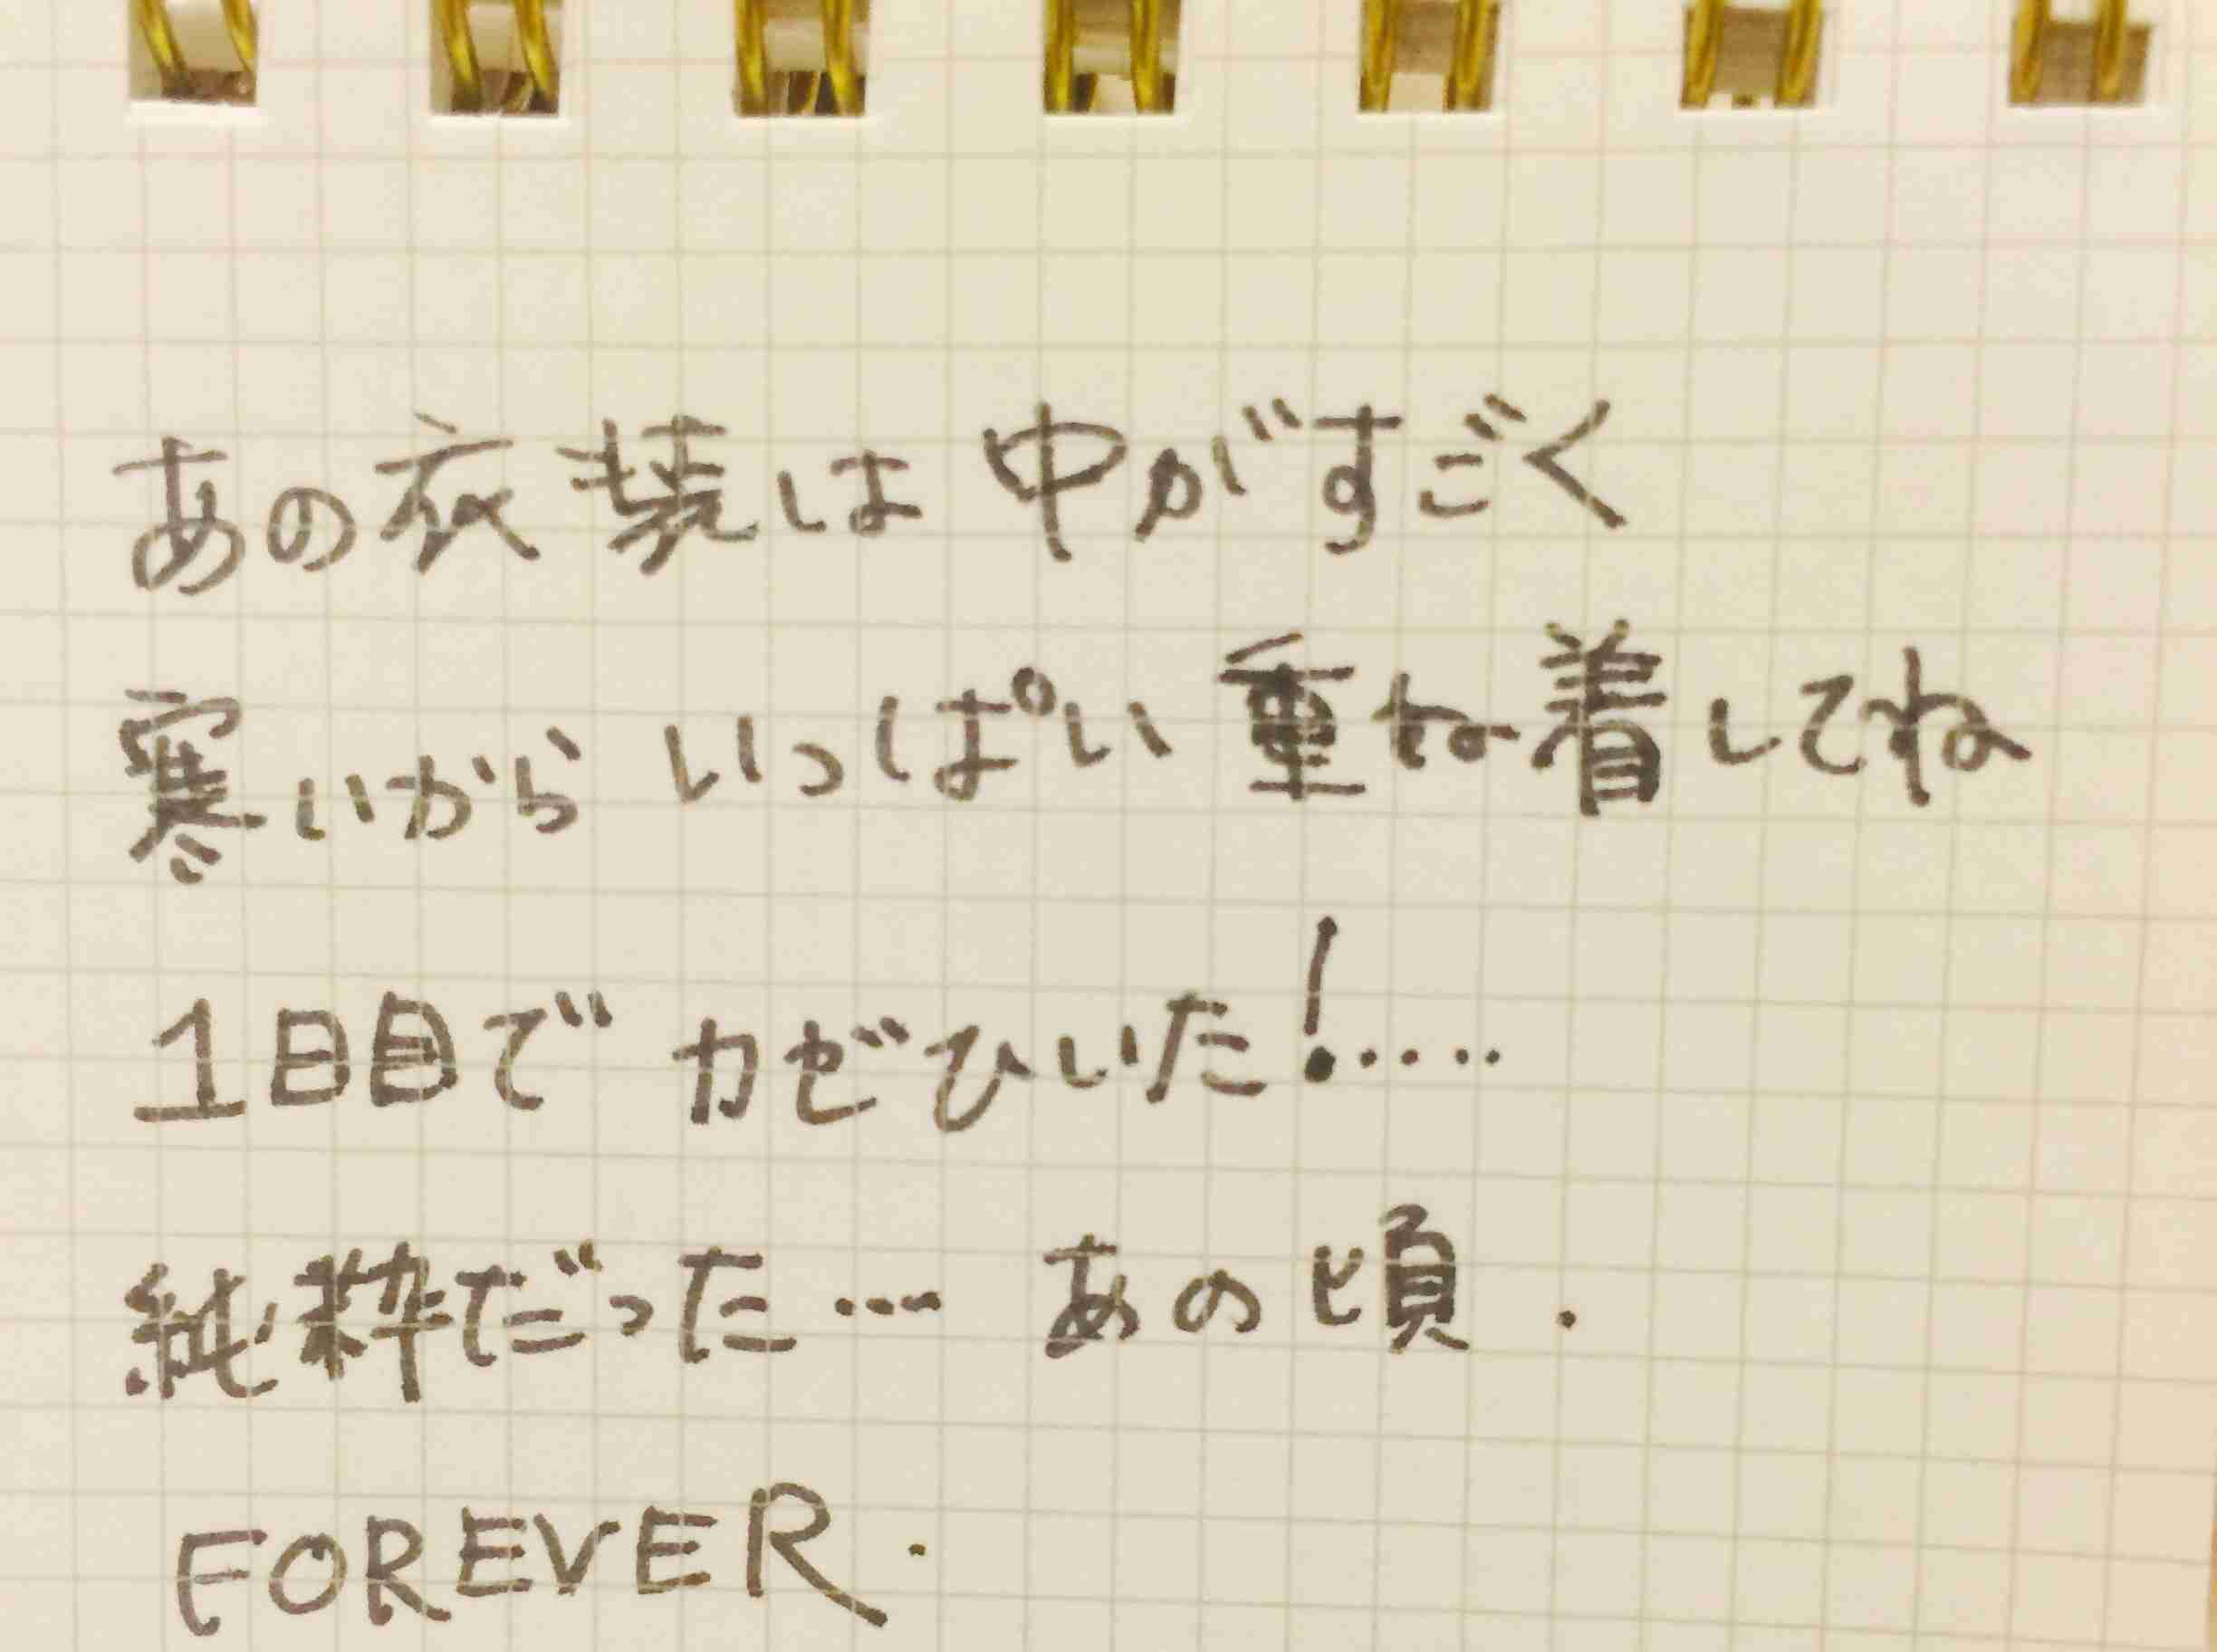 あの衣装は 中がすごく
寒いから いっぱい 重ね着してね
1日目で カゼひいた!.....
純粋だった… あの頃.
FOREVER.